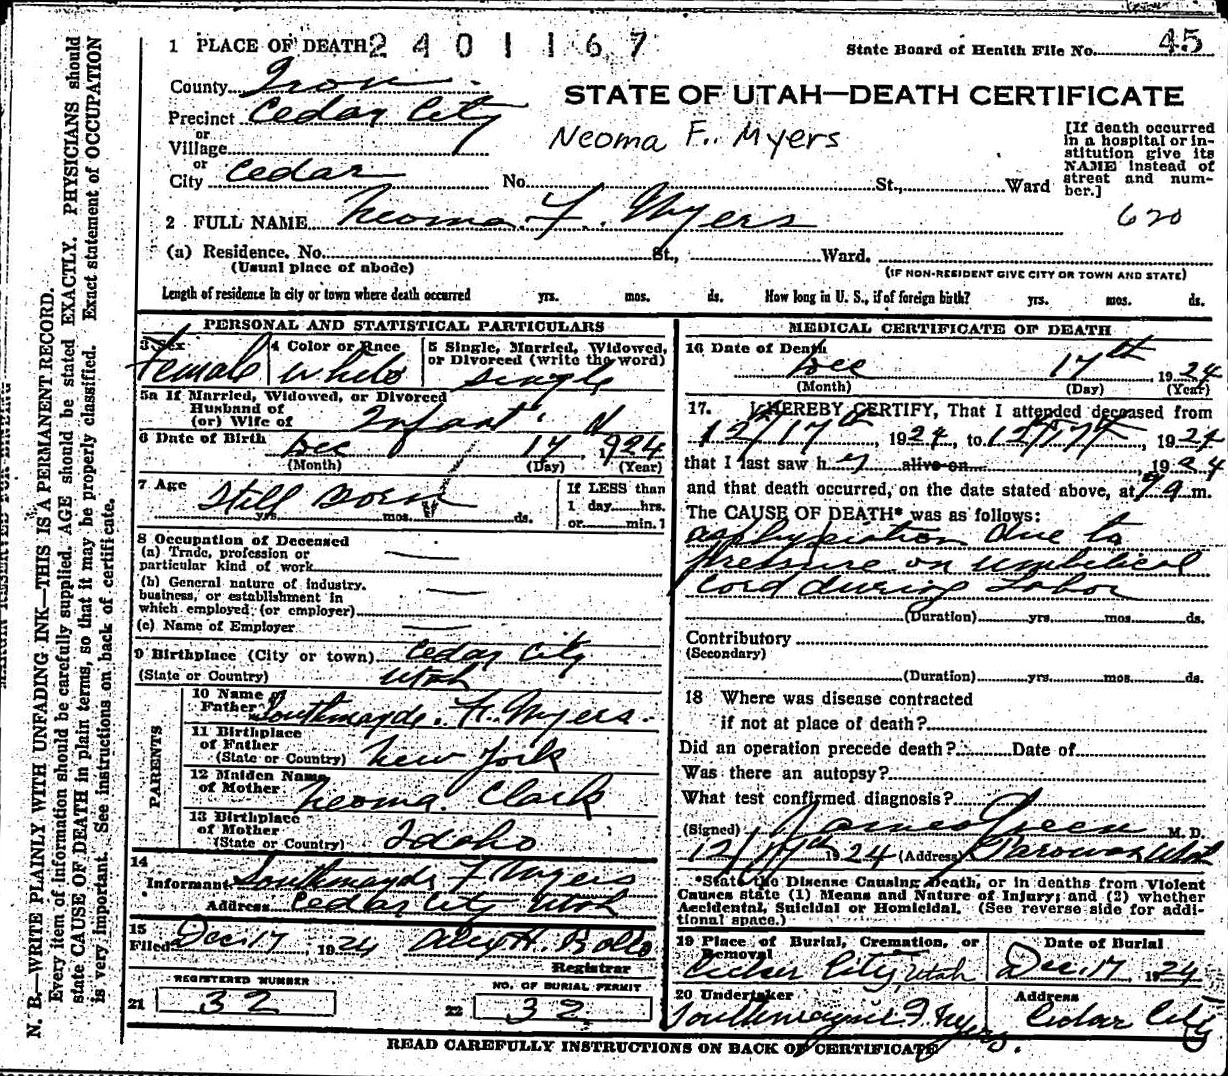 1 PLACE OF DEATH 2 4 0 1 1 6 7
State Board of Health File No. 45
County Iron
STATE OF UTAH—DEATH CERTIFICATE
Precinct Cedar City
or
Village
Neoma F. Myers
[If death occurred
in a hospital or in-
stitution give its
NAME instead of
street and num-
ber.]
or
City Cedar No. St., Ward
620
2 FULL NAME Neoma F. Myers
(a) Residence. No. St., Ward.
(Usual place of abode) (IF NON-RESIDENT GIVE CITY OR TOWN AND STATE)
Length of residence in city or town where death occurred yrs. mos. ds. How long in U. S., if of foreign birth? yrs. mos. ds.
PERSONAL AND STATISTICAL PARTICULARS
3 Sex
Female
4 Color or Race
White
5 Single, Married, Widowed,
or Divorced (write the word)
Single
5a If Married, Widowed, or Divorced
Husband of
(or) Wife of Infant
6 Date of Birth Dec 17, 1924
(Month) (Day) (Year)
7 Age Still Born
yrs. mos. ds.
If LESS than
1 day hrs.
or min.]
8 Occupation of Deceased
(a) Trade, profession or
particular kind of work
(b) General nature of industry,
business, or establishment in
which employed (or employer)
(c) Name of Employer
9 Birthplace (City or town) Cedar City
(State or Country) Utah
PARENTS
10 Name of
Father Southmayde F. Myers.
11 Birthplace
of Father
(State or Country) New York
12 Maiden Name
of Mother Neoma Clark
13 Birthplace
of Mother
(State or Country) Idaho
14
Informant Southmayde F Myers
Address Cedar City Utah
15
Filed Dec. 17, 1924 Alex H. Rollo
Registrar
REGISTERED NUMBER
21 32
NO. OF BURIAL PERMIT
22 32
MEDICAL CERTIFICATE OF DEATH
16 Date of Death
Dec 17th, 1924
(Month) (Day) (Year)
17. I HEREBY CERTIFY, That I attended deceased from
12/17th, 1924, to 12/17th, 1924
that I last saw her alive on, 1924
and that death occurred, on the date stated above, at 9 a m.
The CAUSE OF DEATH* was as follows:
asphyxiation due to
pressure on umbilical
cord during Labor
(Duration) yrs. mos. ds.
Contributory
(Secondary)
(Duration) yrs. mos. ds.
18 Where was disease contracted
if not at place of death?
Did an operation precede death? Date of
Was there an autopsy?
What test confirmed diagnosis?
(Signed) James Green M. D.
12/17th 1924 (Address) Parowan Utah
*State the Disease Causing Death, or in deaths from Violent
Causes state (1) Means and Nature of Injury; and (2) whether
Accidental, Suicidal or Homicidal. (See reverse side for addi-
tional space.)
19 Place of Burial, Cremation, or
Removal
Cedar City, Utah
Date of Burial
Dec. 17, 1924
20 Undertaker
Southmayne F. Myers.
Address
Cedar City
READ CAREFULLY INSTRUCTIONS ON BACK OF CERTIFICATE
N. B.—WRITE PLAINLY WITH UNFADING INK—THIS IS A PERMANENT RECORD.
Every item of information should be carefully supplied. AGE should be stated EXACTLY. PHYSICIANS should
state CAUSE OF DEATH in plain terms, so that it may be properly classified. Exact statement of OCCUPATION
is very important. See instructions on back of certificate.